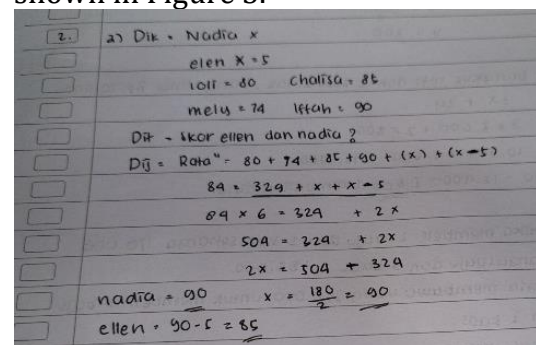 2. a) Dik = Nadia x
elen x - 5
loli = 80 Chalisa = 85
mely = 74 Iffah = 90
Dit = Skor ellen dan nadia ?
Dij = Rata" = 80 + 74 + 85 + 90 + (x) + (x-5)
84 = 329 + x + x - 5
84 x 6 = 329 + 2x
504 = 324 + 2x
2x = 504 + 324
nadia = 90 x = 180/2 = 90
ellen = 90 - 5 = 85